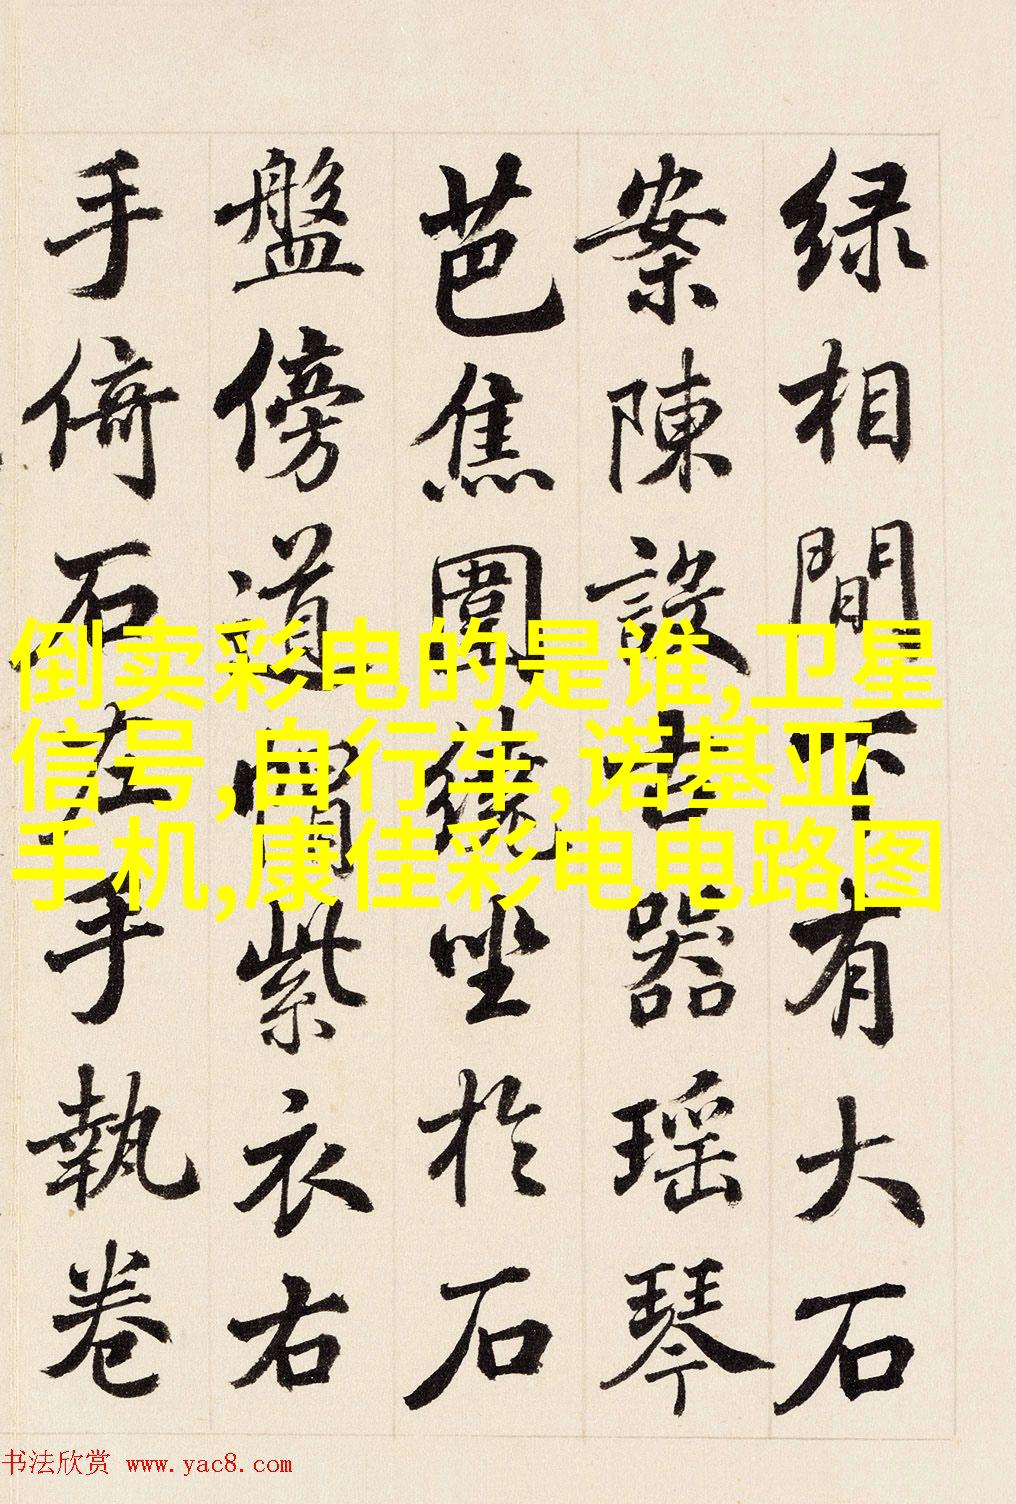 绿相間下有大石
案陳設古器瑶琴
芭焦圍繞坐於石
盤傍道帽紫衣右
手倚石左手執卷
倒卖彩电的是谁,卫星
信号,自行车,诺基亚
手机,康佳彩电电路图
书法欣赏 www.yac8.com